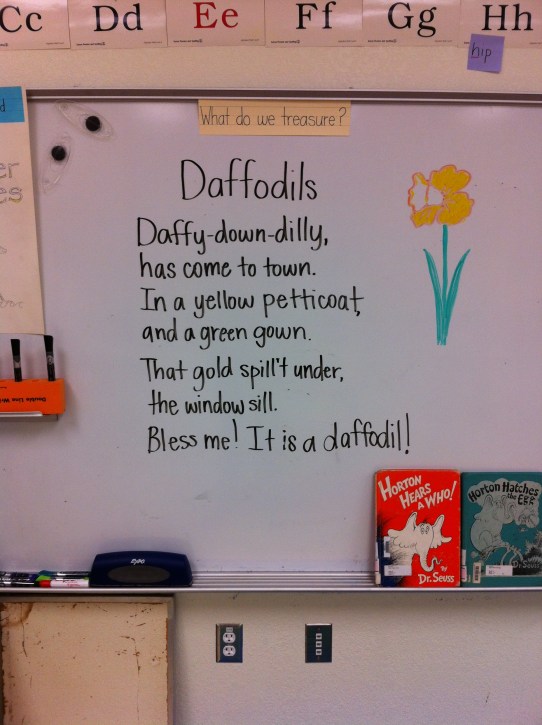 Cc Dd Ee Ff Gg Hh
hip
What do we treasure?
Daffodils
Daffy-down-dilly,
has come to town.
In a yellow petticoat,
and a green gown.
That gold spill't under,
the window sill.
Bless me! It is a daffodil!
HORTON
HEARS
A WHO!
BY
DR. SEUSS
Horton Hatches
the EGG
Dr. Seuss
EXPO